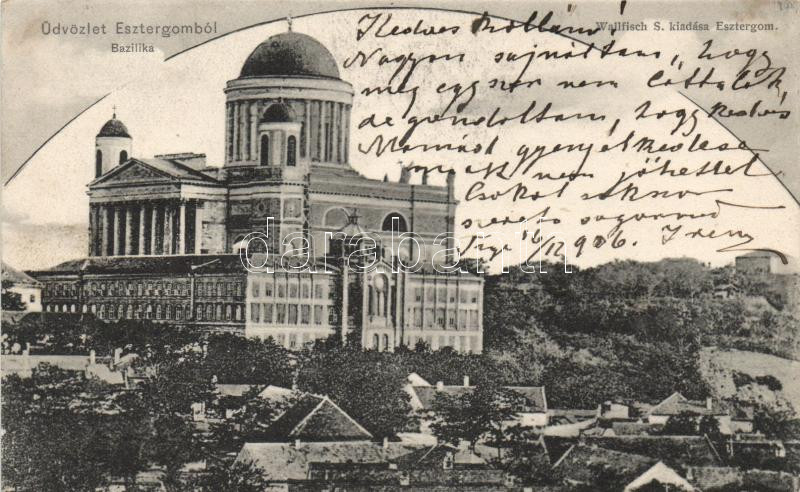 Üdvözlet Esztergomból
Bazilika
Wallfisch S. kiadása Esztergom.
Kedves
Nagyon sajnáltam, hogy
még egyszer nem
de gondoltam, hogy kedves
Mamád gyengélkedése
miatt nem jöhettél
Csókol
szerető sógornőd
1906. Irén
darabanth.com